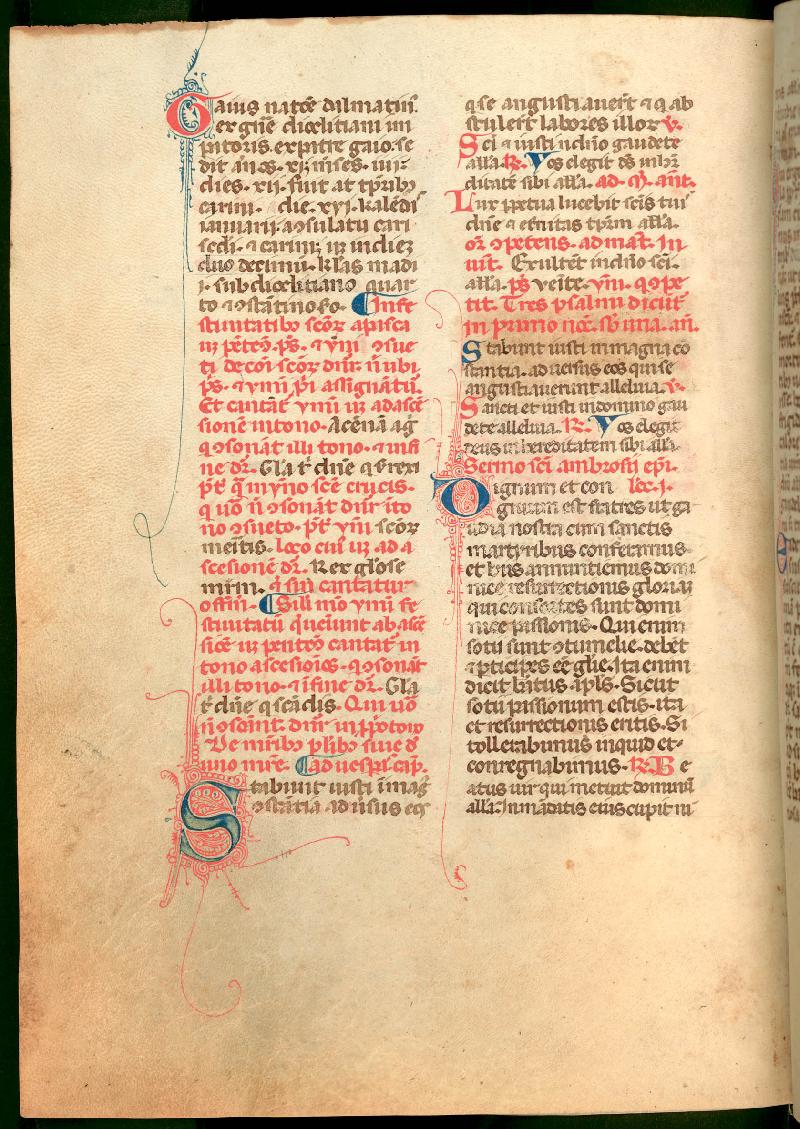 Gaius natiōe dalmatin'.
ex gñe dioclitiani im
pitoris. ex pitre gaio. se
dit añōs. xi. mēses. iiij.
dies. xii. fuit āt tp̄ribꝰ
carini. die. xvi. kalēdꝭ
ianuarii. a ꝯsulatu cari
scd̄i. ⁊ carini; uꝫ in dieꝫ
duo decimū. kl̄as madi
j. sub dioclitiano quar
to ⁊ ꝯstātino ſo. In fe
stiuitatibꝰ scōꝝ a pasca
uꝫ pētēꝯ. ps̄. ⁊ ym̄i ꝯsue
ti de cōi scōꝝ dn̄r. n̄ ubi
ps̄. ⁊ ymni p̄i assignātū.
Et cantāt' ymī uꝫ ad ascē
sionē in tono. Ad cenā ag̃
q̇ ꝯsonāt illi tono. ⁊ in fi
ne dr̄. Gl̄a t' dn̄e q̇ surexi
pt' q̄ in ymno scē crucis.
q̇ uō n̄ ꝯsonāt dn̄r in to
no ꝯsueto. pt' ymī scōꝝ
meritis. loco cui' uꝫ ad a
scesionē dr̄. Rex gl̄ose
mr̄m. q̇ sīn cantatur
offm̄. Sili mō ymni fe
stiuitatū q̇ ueniunt ab ascē
siōe uꝫ pentēꝯ cantāt' in
tono ascēsiōis. q̇ ꝯsonāt
illi tono. ⁊ ī fine dr̄. Gl̄a
t' dn̄e q̇ scādis. Qui uō
n̄ ꝯsonāt. dn̄r in p̄prio tono
De mr̄ibꝰ pl̄ibꝰ siue d̄
uno mr̄e. ad uesp̄. cap̄.
Stabunt iusti ī mag̃
ꝯstātia aduersus eos
q̇ se angustiauer̄t ⁊ q̇ ab
stulerūt labores illoꝝ. v̄.
Sc̄i ⁊ iusti ī dn̄o gaudete
all'a. R̄. Vos elegit dš ī h̄e
ditatē sibi all'a. ad. m̄. ant̄.
Lux ppetua lucebit sc̄is tuis
dn̄e ⁊ et'nitas tp̄ꝝ all'a.
or̄ ꝯpetens. ad mat̄. In
uit̄. Exultēt ī dn̄o sc̄i.
all'a. ps̄ venite. ym̄. q̇ ꝯpe
tit. Tres psalmi dicūt'
in primo noc̄. sb̄ una. añ.
Stabunt iusti in magna co
stantia. aduersus eos qui se
angustiauerunt alleluia. v̄.
Sancti et iusti in domino gau
dete alleluia. R̄. Vos elegit
deus in hereditatem sibi all'a.
Sermo scī ambrosii ep̄i.
Dignum et con lec̄. j.
gruum est fratres ut ga
udia nostra cum sanctis
martyribus conferamus
et hiis annuntiemus domi
nice resurrectionis gloriaꝫ
qui consortes sunt domi
nice passionis. Qui enim
sotii sunt ꝯtumelie. debēt
⁊ pticipes eē gl̄ie. Ita enim
dicit bt̄us apl̄s. Sicut
sotii passionum estis. ita
et resurrectionis eritis. Si
tollerabimus inquid et
conregnabimus. R̄. Be
atus uir qui metuit dominū
all'a. In mādatis eius cupit ni